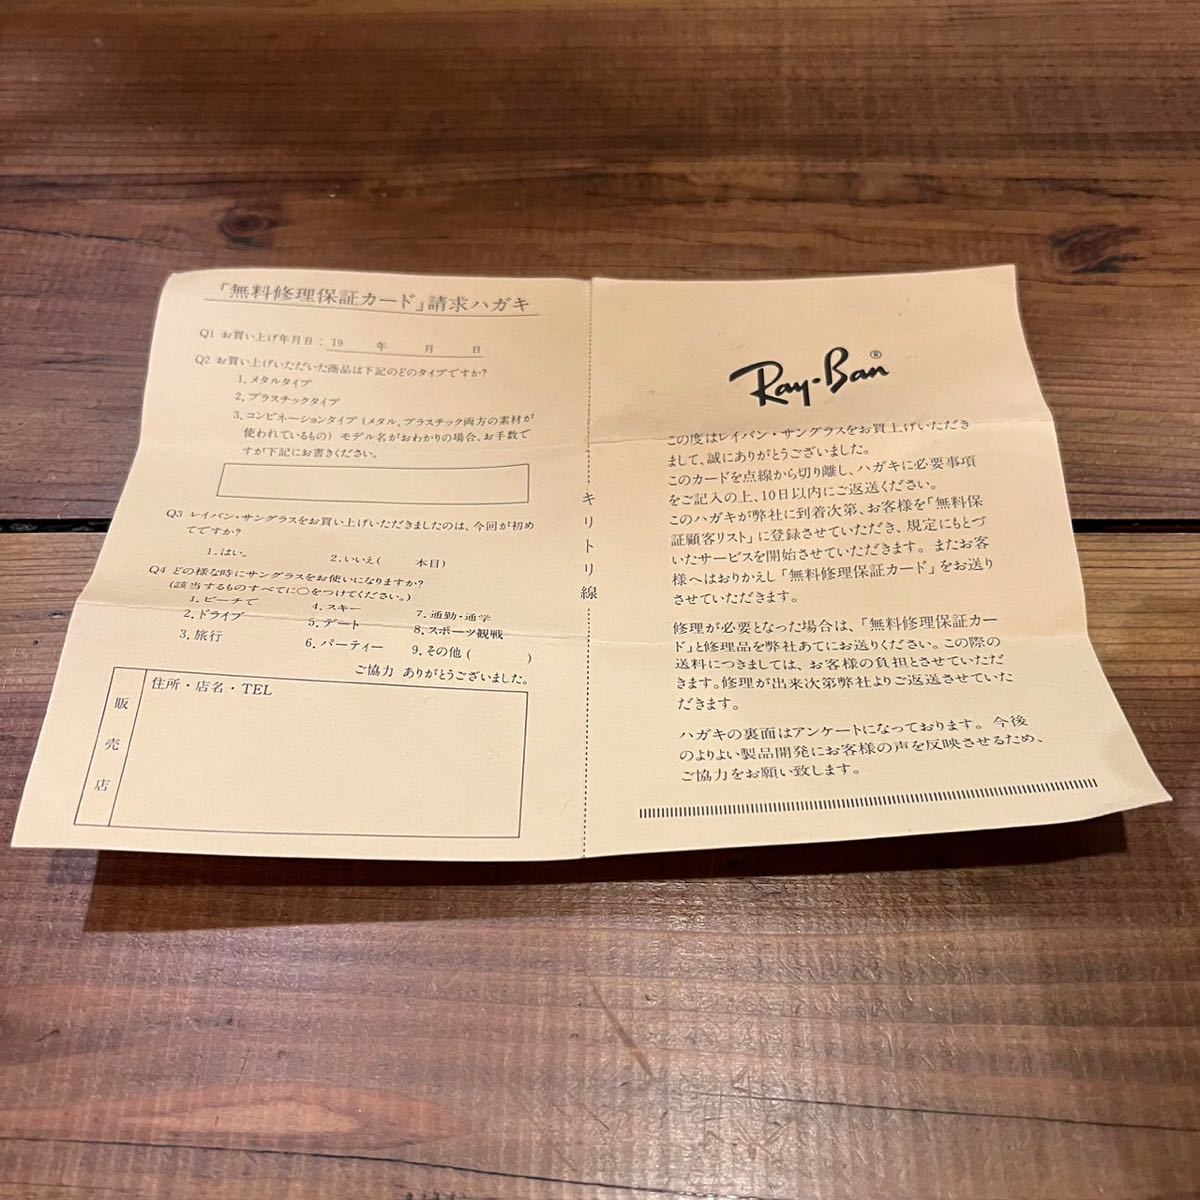 「無料修理保証カード」請求ハガキ
Q1 お買い上げ年月日：19　　年　　月　　日
Q2 お買い上げいただいた商品は下記のどのタイプですか?
1. メタルタイプ
2. プラスチックタイプ
3. コンビネーションタイプ（メタル、プラスチック両方の素材が
使われているもの）モデル名がおわかりの場合、お手数で
すが下記にお書きください。
Q3 レイバン・サングラスをお買い上げいただきましたのは、今回が初め
てですか?
1. はい。　　2. いいえ(　　本目)
Q4 どの様な時にサングラスをお使いになりますか?
(該当するものすべてに○をつけてください。)
1. ビーチで　　4. スキー　　7. 通勤・通学
2. ドライブ　　5. デート　　8. スポーツ観戦
3. 旅行　　6. パーティー　　9. その他 (　　)
ご協力 ありがとうございました。
販売店
住所・店名・TEL
キリトリ線
Ray-Ban®
この度はレイバン・サングラスをお買上げいただき
まして、誠にありがとうございました。
このカードを点線から切り離し、ハガキに必要事項
をご記入の上、10日以内にご返送ください。
このハガキが弊社に到着次第、お客様を「無料保
証顧客リスト」に登録させていただき、規定にもとづ
いたサービスを開始させていただきます。またお客
様へはおりかえし「無料修理保証カード」をお送り
させていただきます。
修理が必要となった場合は、「無料修理保証カー
ド」と修理品を弊社あてにお送りください。この際の
送料につきましては、お客様の負担とさせていただ
きます。修理が出来次第弊社よりご返送させていた
だきます。
ハガキの裏面はアンケートになっております。今後
のよりよい製品開発にお客様の声を反映させるため、
ご協力をお願い致します。